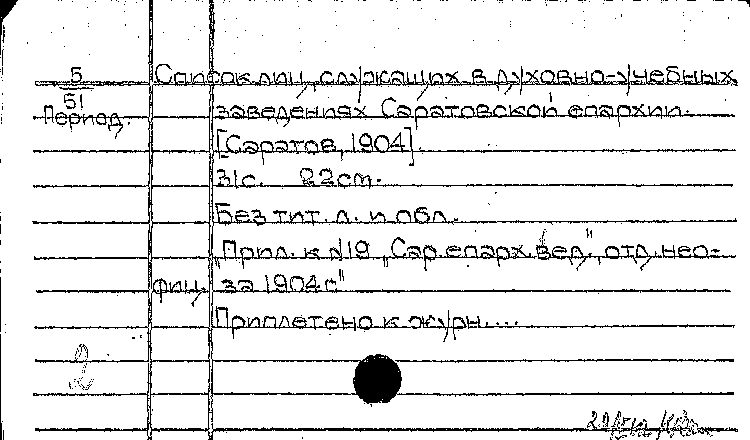 5 Список лиц, служащих в духовно-учебных
51 заведениях Саратовской епархии.
Период. [Саратов, 1904].
31с. 22см.
Без тит. л. и обл.
„Прил. к №19 „Сар. епарх. вед.", отд. нео=
фиц. за 1904 г."
Приплетено к журн....
2